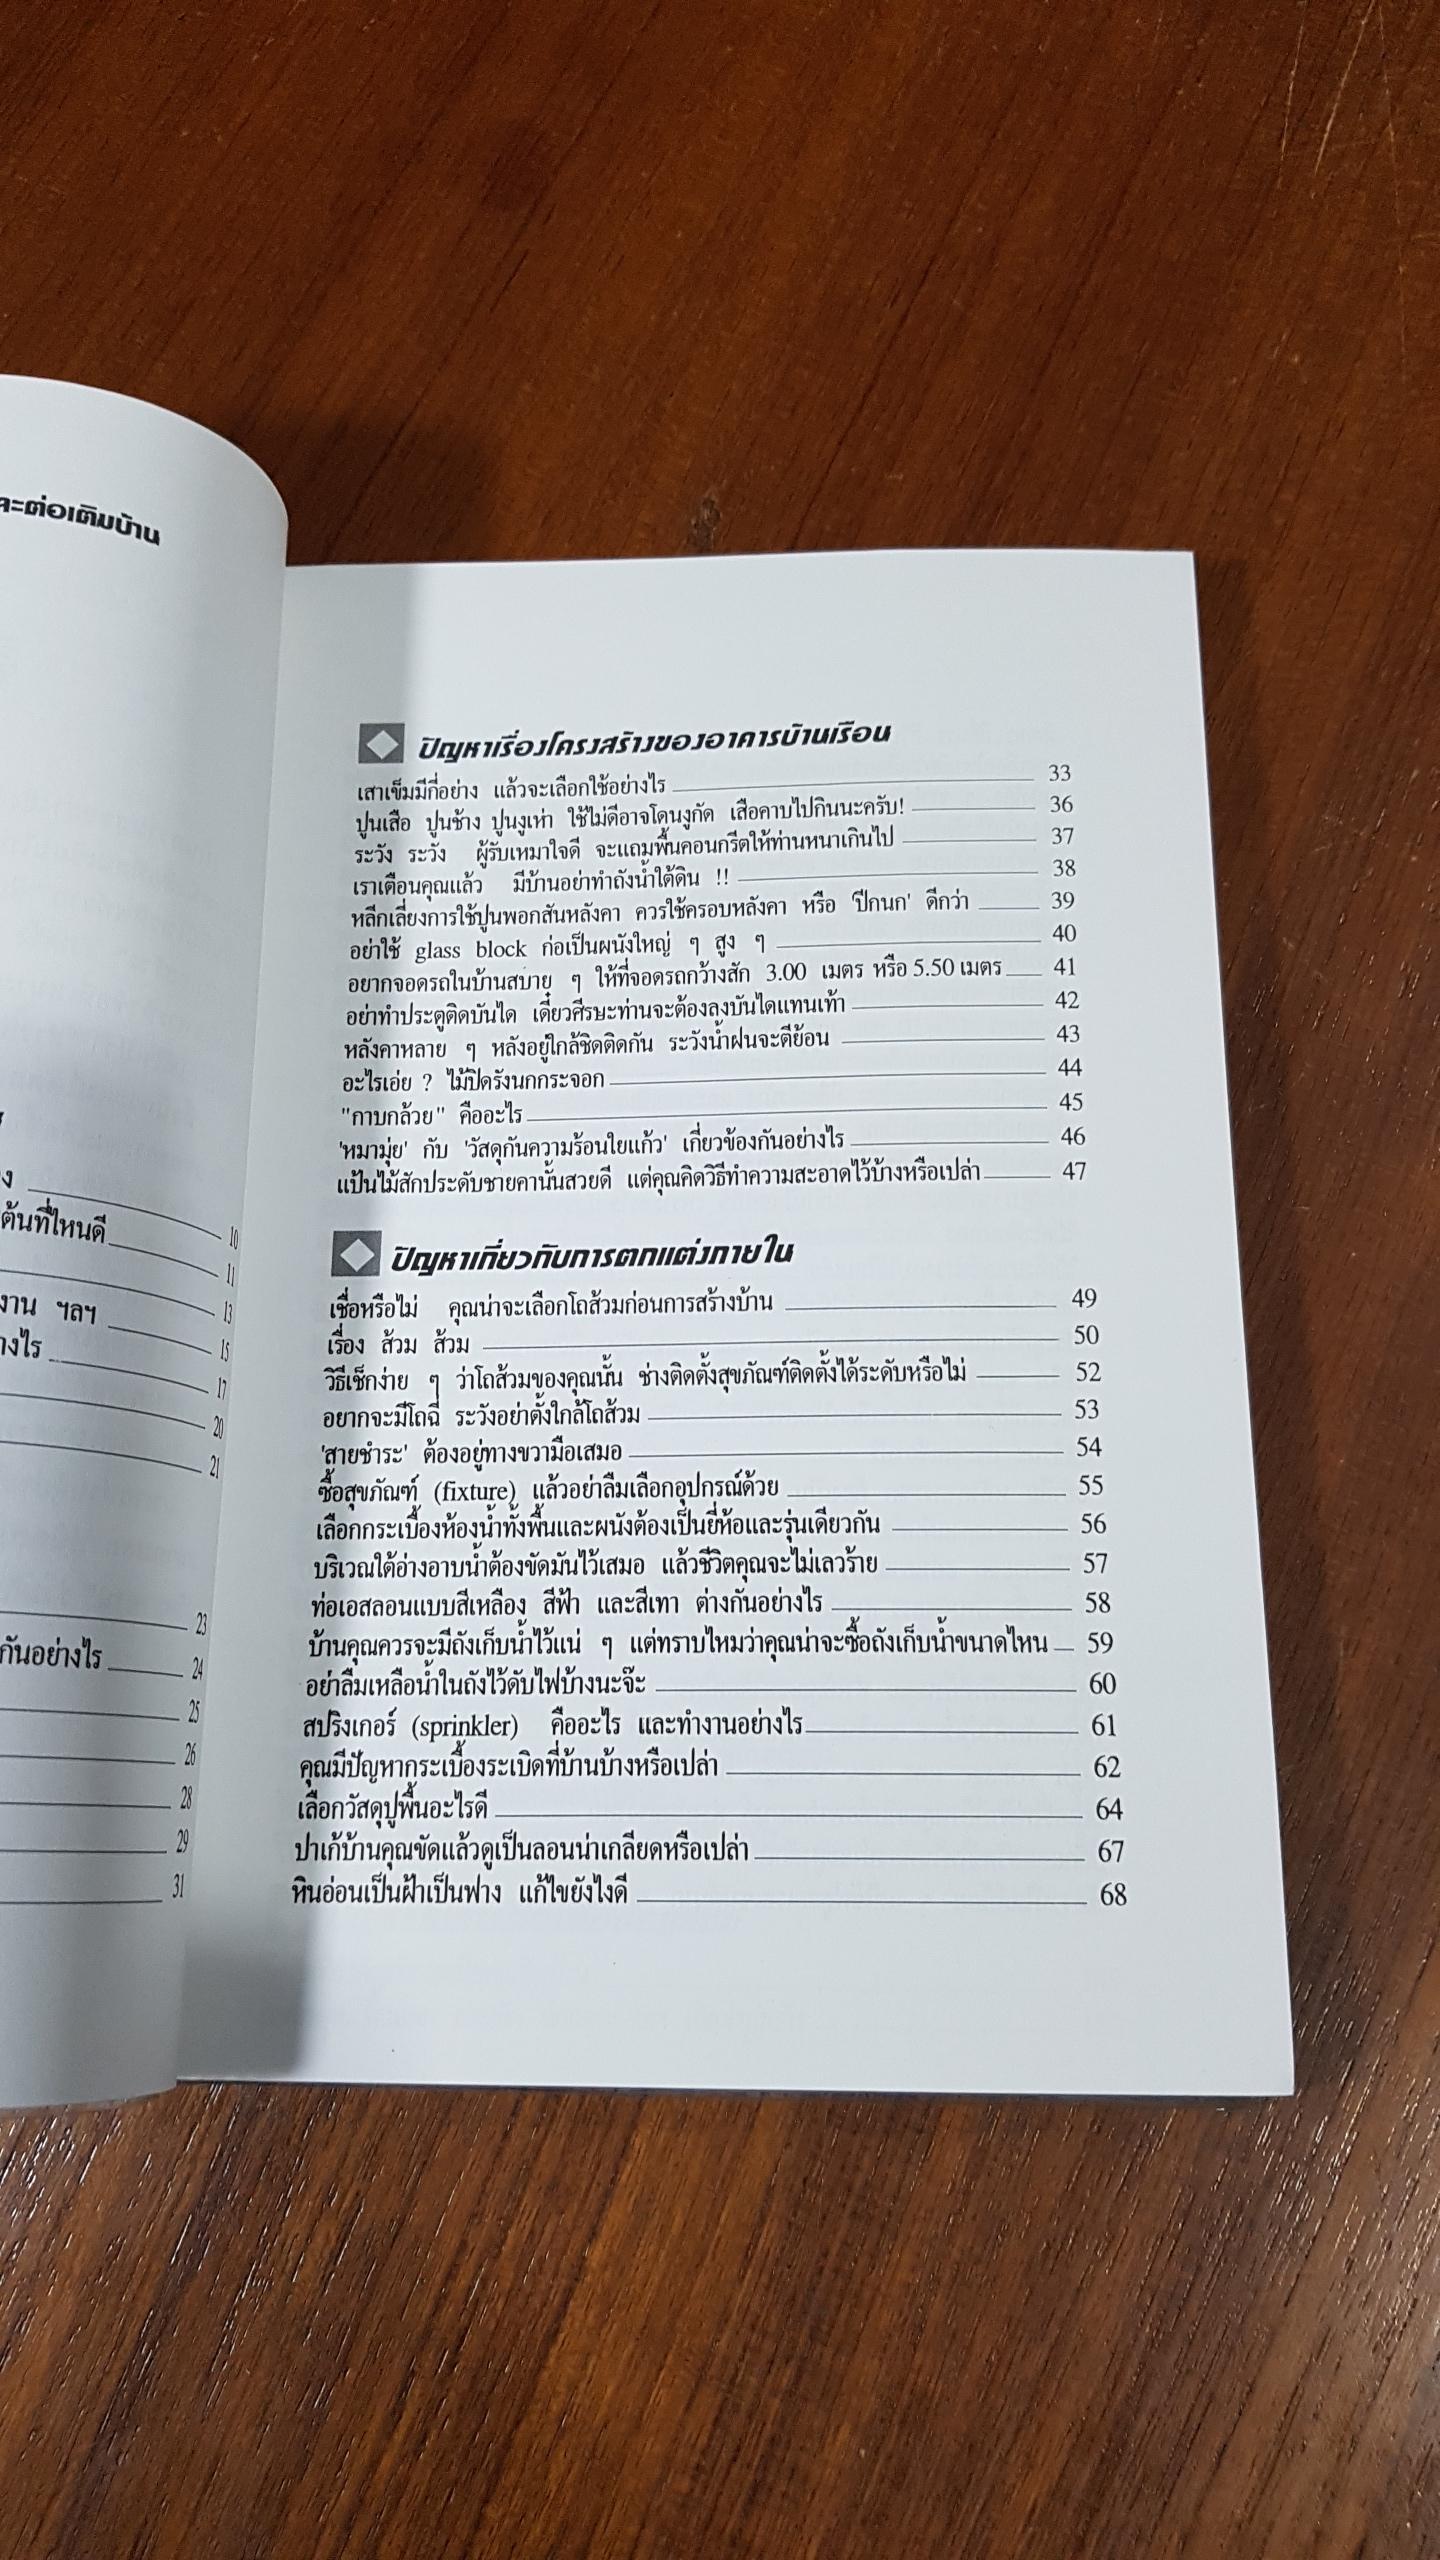 ะต่อเติมบ้าน
ง 10
ต้นที่ไหนดี 11
13
งาน ฯลฯ 15
างไร 17
20
21
23
กันอย่างไร 24
25
26
28
29
31
ปัญหาเรื่องโครงสร้างของอาคารบ้านเรือน
เสาเข็มมีกี่อย่าง แล้วจะเลือกใช้อย่างไร 33
ปูนเสือ ปูนช้าง ปูนงูเห่า ใช้ไม่ดีอาจโดนงูกัด เสือคาบไปกินนะครับ! 36
ระวัง ระวัง ผู้รับเหมาใจดี จะแถมพื้นคอนกรีตให้ท่านหนาเกินไป 37
เราเตือนคุณแล้ว มีบ้านอย่าทำถังน้ำใต้ดิน !! 38
หลีกเลี่ยงการใช้ปูนพอกสันหลังคา ควรใช้ครอบหลังคา หรือ 'ปีกนก' ดีกว่า 39
อย่าใช้ glass block ก่อเป็นผนังใหญ่ ๆ สูง ๆ 40
อยากจอดรถในบ้านสบาย ๆ ให้ที่จอดรถกว้างสัก 3.00 เมตร หรือ 5.50 เมตร 41
อย่าทำประตูติดบันได เดี๋ยวศีรษะท่านจะต้องลงบันไดแทนเท้า 42
หลังคาหลาย ๆ หลังอยู่ใกล้ชิดติดกัน ระวังน้ำฝนจะตีย้อน 43
อะไรเอ่ย ? ไม้ปิดรังนกกระจอก 44
"กาบกล้วย" คืออะไร 45
'หมามุ่ย' กับ 'วัสดุกันความร้อนใยแก้ว' เกี่ยวข้องกันอย่างไร 46
แป้นไม้สักประดับชายคานั้นสวยดี แต่คุณคิดวิธีทำความสะอาดไว้บ้างหรือเปล่า 47
ปัญหาเกี่ยวกับการตกแต่งภายใน
เชื่อหรือไม่ คุณน่าจะเลือกโถส้วมก่อนการสร้างบ้าน 49
เรื่อง ส้วม ส้วม 50
วิธีเช็กง่าย ๆ ว่าโถส้วมของคุณนั้น ช่างติดตั้งสุขภัณฑ์ติดตั้งได้ระดับหรือไม่ 52
อยากจะมีโถฉี่ ระวังอย่าตั้งใกล้โถส้วม 53
'สายชำระ' ต้องอยู่ทางขวามือเสมอ 54
ซื้อสุขภัณฑ์ (fixture) แล้วอย่าลืมเลือกอุปกรณ์ด้วย 55
เลือกกระเบื้องห้องน้ำทั้งพื้นและผนังต้องเป็นยี่ห้อและรุ่นเดียวกัน 56
บริเวณใต้อ่างอาบน้ำต้องขัดมันไว้เสมอ แล้วชีวิตคุณจะไม่เลวร้าย 57
ท่อเอสลอนแบบสีเหลือง สีฟ้า และสีเทา ต่างกันอย่างไร 58
บ้านคุณควรจะมีถังเก็บน้ำไว้แน่ ๆ แต่ทราบไหมว่าคุณน่าจะซื้อถังเก็บน้ำขนาดไหน 59
อย่าลืมเหลือน้ำในถังไว้ดับไฟบ้างนะจ๊ะ 60
สปริงเกอร์ (sprinkler) คืออะไร และทำงานอย่างไร 61
คุณมีปัญหากระเบื้องระเบิดที่บ้านบ้างหรือเปล่า 62
เลือกวัสดุปูพื้นอะไรดี 64
ปาเก้บ้านคุณขัดแล้วดูเป็นลอนน่าเกลียดหรือเปล่า 67
หินอ่อนเป็นฝ้าเป็นฟาง แก้ไขยังไงดี 68